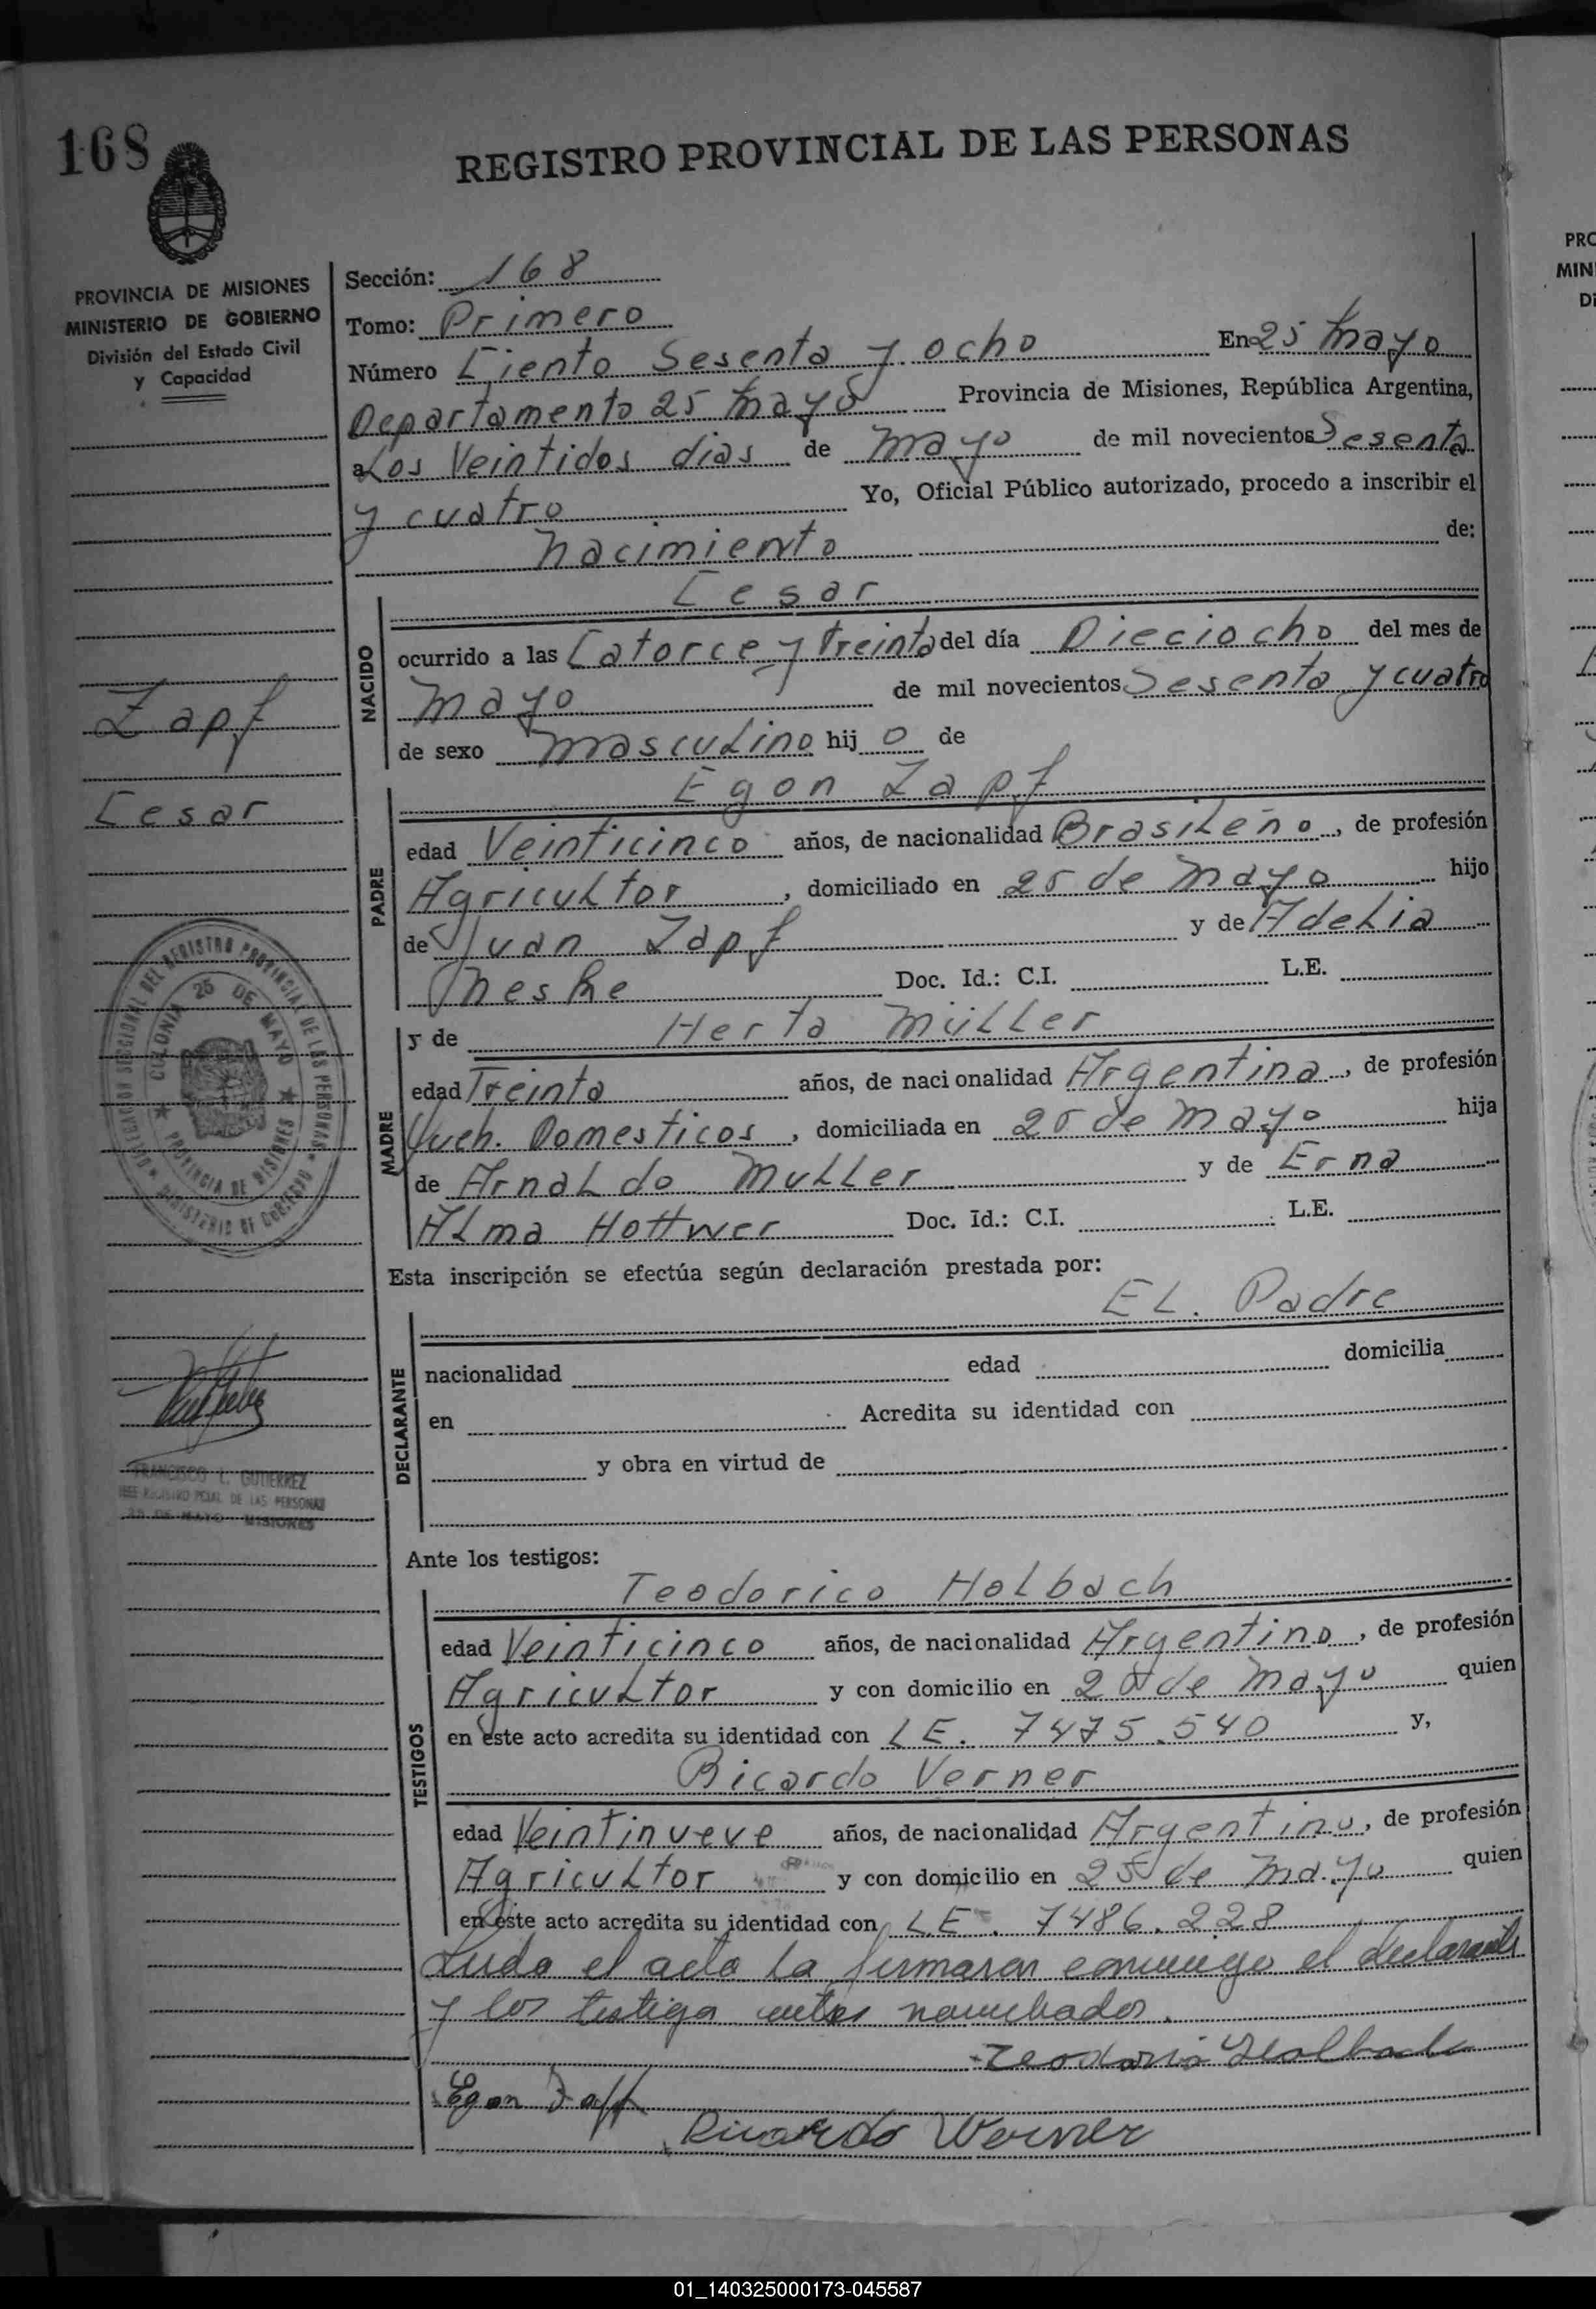 168
REGISTRO PROVINCIAL DE LAS PERSONAS
PROVINCIA DE MISIONES
MINISTERIO DE GOBIERNO
División del Estado Civil
y Capacidad
Sección: 168
Tomo: Primero
Número Ciento Sesenta y ocho En 25 Mayo
Departamento 25 Mayo Provincia de Misiones, República Argentina,
a Los Veintidos dias de Mayo de mil novecientos Sesenta
y cuatro Yo, Oficial Público autorizado, procedo a inscribir el
Nacimiento de:
Cesar
NACIDO
ocurrido a las Catorce y treinta del día Dieciocho del mes de
Mayo de mil novecientos Sesenta y cuatro
de sexo Masculino hij o de
Zapf
Cesar
Egon Zapf
PADRE
edad Veinticinco años, de nacionalidad Brasileño, de profesión
Agricultor, domiciliado en 25 de Mayo hijo
de Juan Zapf y de Adelia
Meske Doc. Id.: C.I. L.E.
y de Herta Müller
MADRE
edad Treinta años, de nacionalidad Argentina, de profesión
Queh. Domesticos, domiciliada en 25 de Mayo hija
de Arnaldo Muller y de Erna
Alma Hottwer Doc. Id.: C.I. L.E.
DELEGACION SECCIONAL DEL REGISTRO PROVINCIAL DE LAS PERSONAS
MINISTERIO DE GOBIERNO
COLONIA 25 DE MAYO
PROVINCIA DE MISIONES
Esta inscripción se efectúa según declaración prestada por:
EL. Padre
DECLARANTE
nacionalidad edad domicilia
en Acredita su identidad con
y obra en virtud de
FRANCISCO L. GUTIERREZ
JEFE REGISTRO PCIAL DE LAS PERSONAS
25 DE MAYO MISIONES
Ante los testigos:
Teodorico Holbach
TESTIGOS
edad Veinticinco años, de nacionalidad Argentino, de profesión
Agricultor y con domicilio en 25 de Mayo quien
en este acto acredita su identidad con LE. 7475.540 y,
Ricardo Verner
edad Veintinueve años, de nacionalidad Argentino, de profesión
Agricultor y con domicilio en 25 de Mayo quien
en este acto acredita su identidad con LE. 7486.228
Leida el acta la firmaron conmigo el declarante
y los testigos antes nombrados.
Teodorico Holbach
Egon Zapf
Ricardo Werner
01_140325000173-045587